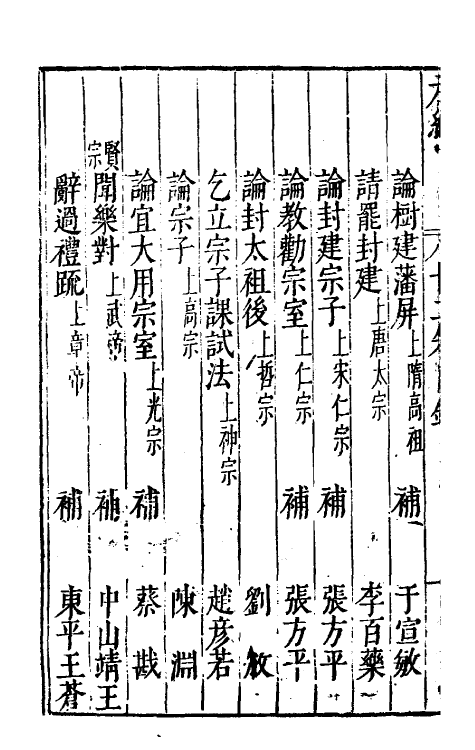 論樹建藩屏上隋高祖 補 于宣敏
請罷封建上唐太宗 李百藥
論封建宗子上宋仁宗 補 張方平
論教勸宗室上仁宗 補 張方平
論封太祖後上哲宗 劉攽
乞立宗子課試法上神宗 趙彦若
論宗子上高宗 陳淵
論宜大用宗室上光宗 補 蔡戡
賢宗 聞樂對上武帝 補 中山靖王
辭過禮疏上章帝 補 東平王蒼